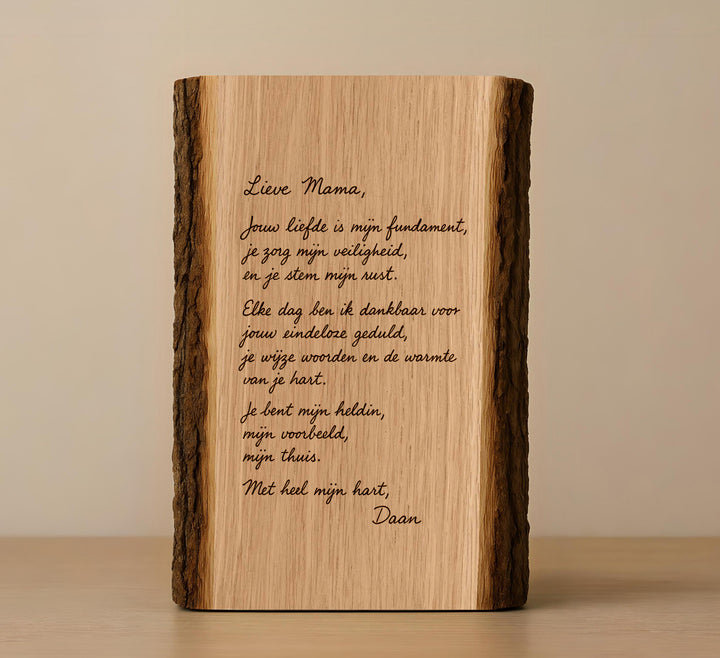 Lieve Mama,
Jouw liefde is mijn fundament,
je zorg mijn veiligheid,
en je stem mijn rust.
Elke dag ben ik dankbaar voor
jouw eindeloze geduld,
je wijze woorden en de warmte
van je hart.
Je bent mijn heldin,
mijn voorbeeld,
mijn thuis.
Met heel mijn hart,
Daan